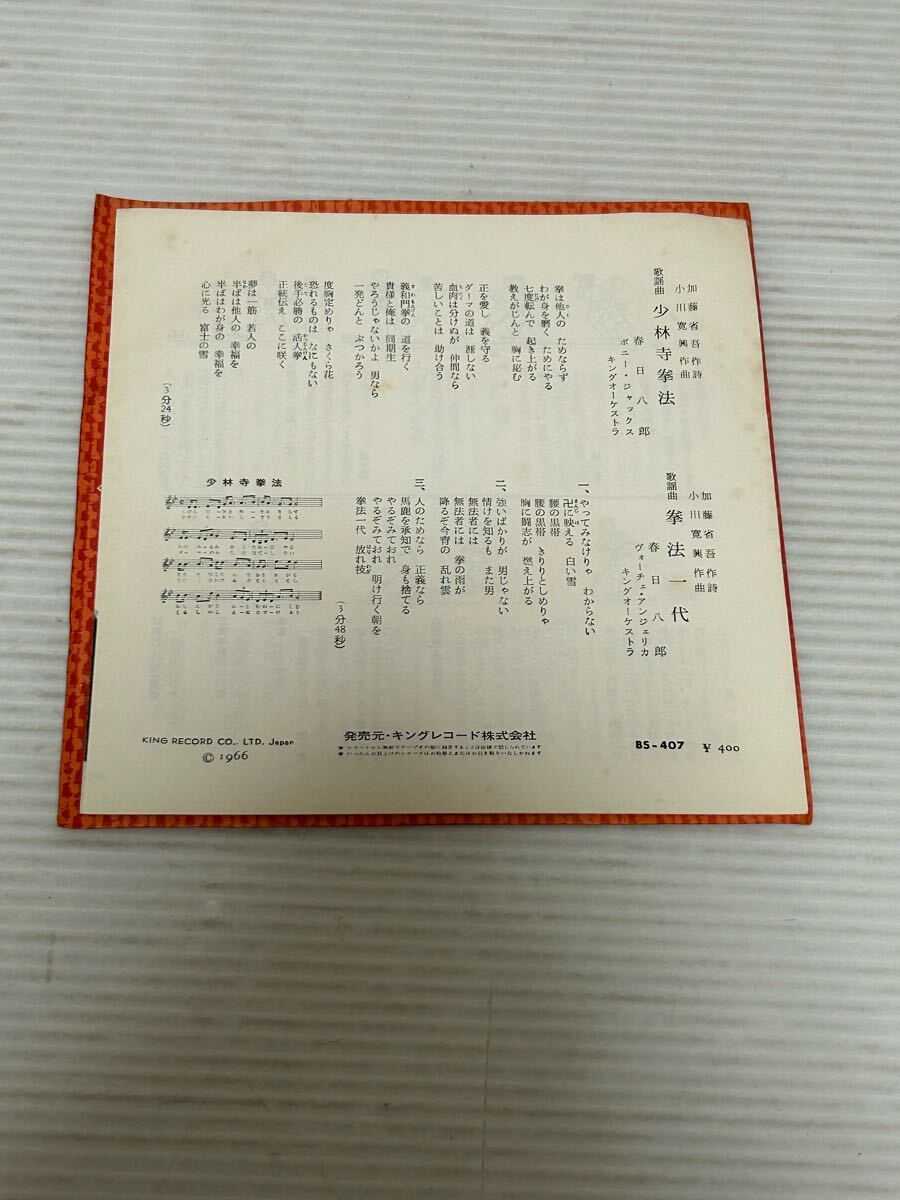 加藤省吾作詩
小川寛興作曲
歌謡曲 少林寺拳法
春日八郎
ボニー・ジャックス
キングオーケストラ
拳は他人の ためならず
わが身を磨く ためにやる
七度転んで 起き上がる
教えがじんと 胸に泌む
正を愛し 義を守る
ダーマの道は 涯しない
血肉は分けぬが 仲間なら
苦しいことは 助け合う
義和門拳の 道を行く
貴様と俺は 同期生
やろうじゃないかよ 男なら
一発どんと ぶつかろう
度胸定めりゃ さくら花
恐れるものは なにもない
後手必勝の 活人拳
正統伝え ここに咲く
夢は一筋 若人の
半ばは他人の 幸福を
半ばはわが身の 幸福を
心に光る 富士の雪
(3分24秒)
加藤省吾作詩
小川寛興作曲
歌謡曲 拳法一代
春日八郎
ヴォーチェ・アンジェリカ
キングオーケストラ
一、やってみなけりゃ わからない
卍に映える 白い雪
腰の黒帯
腰の黒帯 きりりとしめりゃ
胸に闘志が 燃え上がる
二、強いばかりが 男じゃない
情けを知るも また男
無法者には
無法者には 拳の雨が
降るぞ今宵の 乱れ雲
三、人のためなら 正義なら
馬鹿を承知で 身も捨てる
やるぞみておれ
やるぞみておれ 明け行く朝を
拳法一代 放れ技
(3分48秒)
少林寺拳法
KING RECORD CO., LTD. Japan
© 1966
発売元・キングレコード株式会社
★レコードから無断でテープその他に録音することは法律で禁じられています
★いったんお買上げのレコードはお取替えまたはお引き取りいたしかねます
BS-407 ¥400